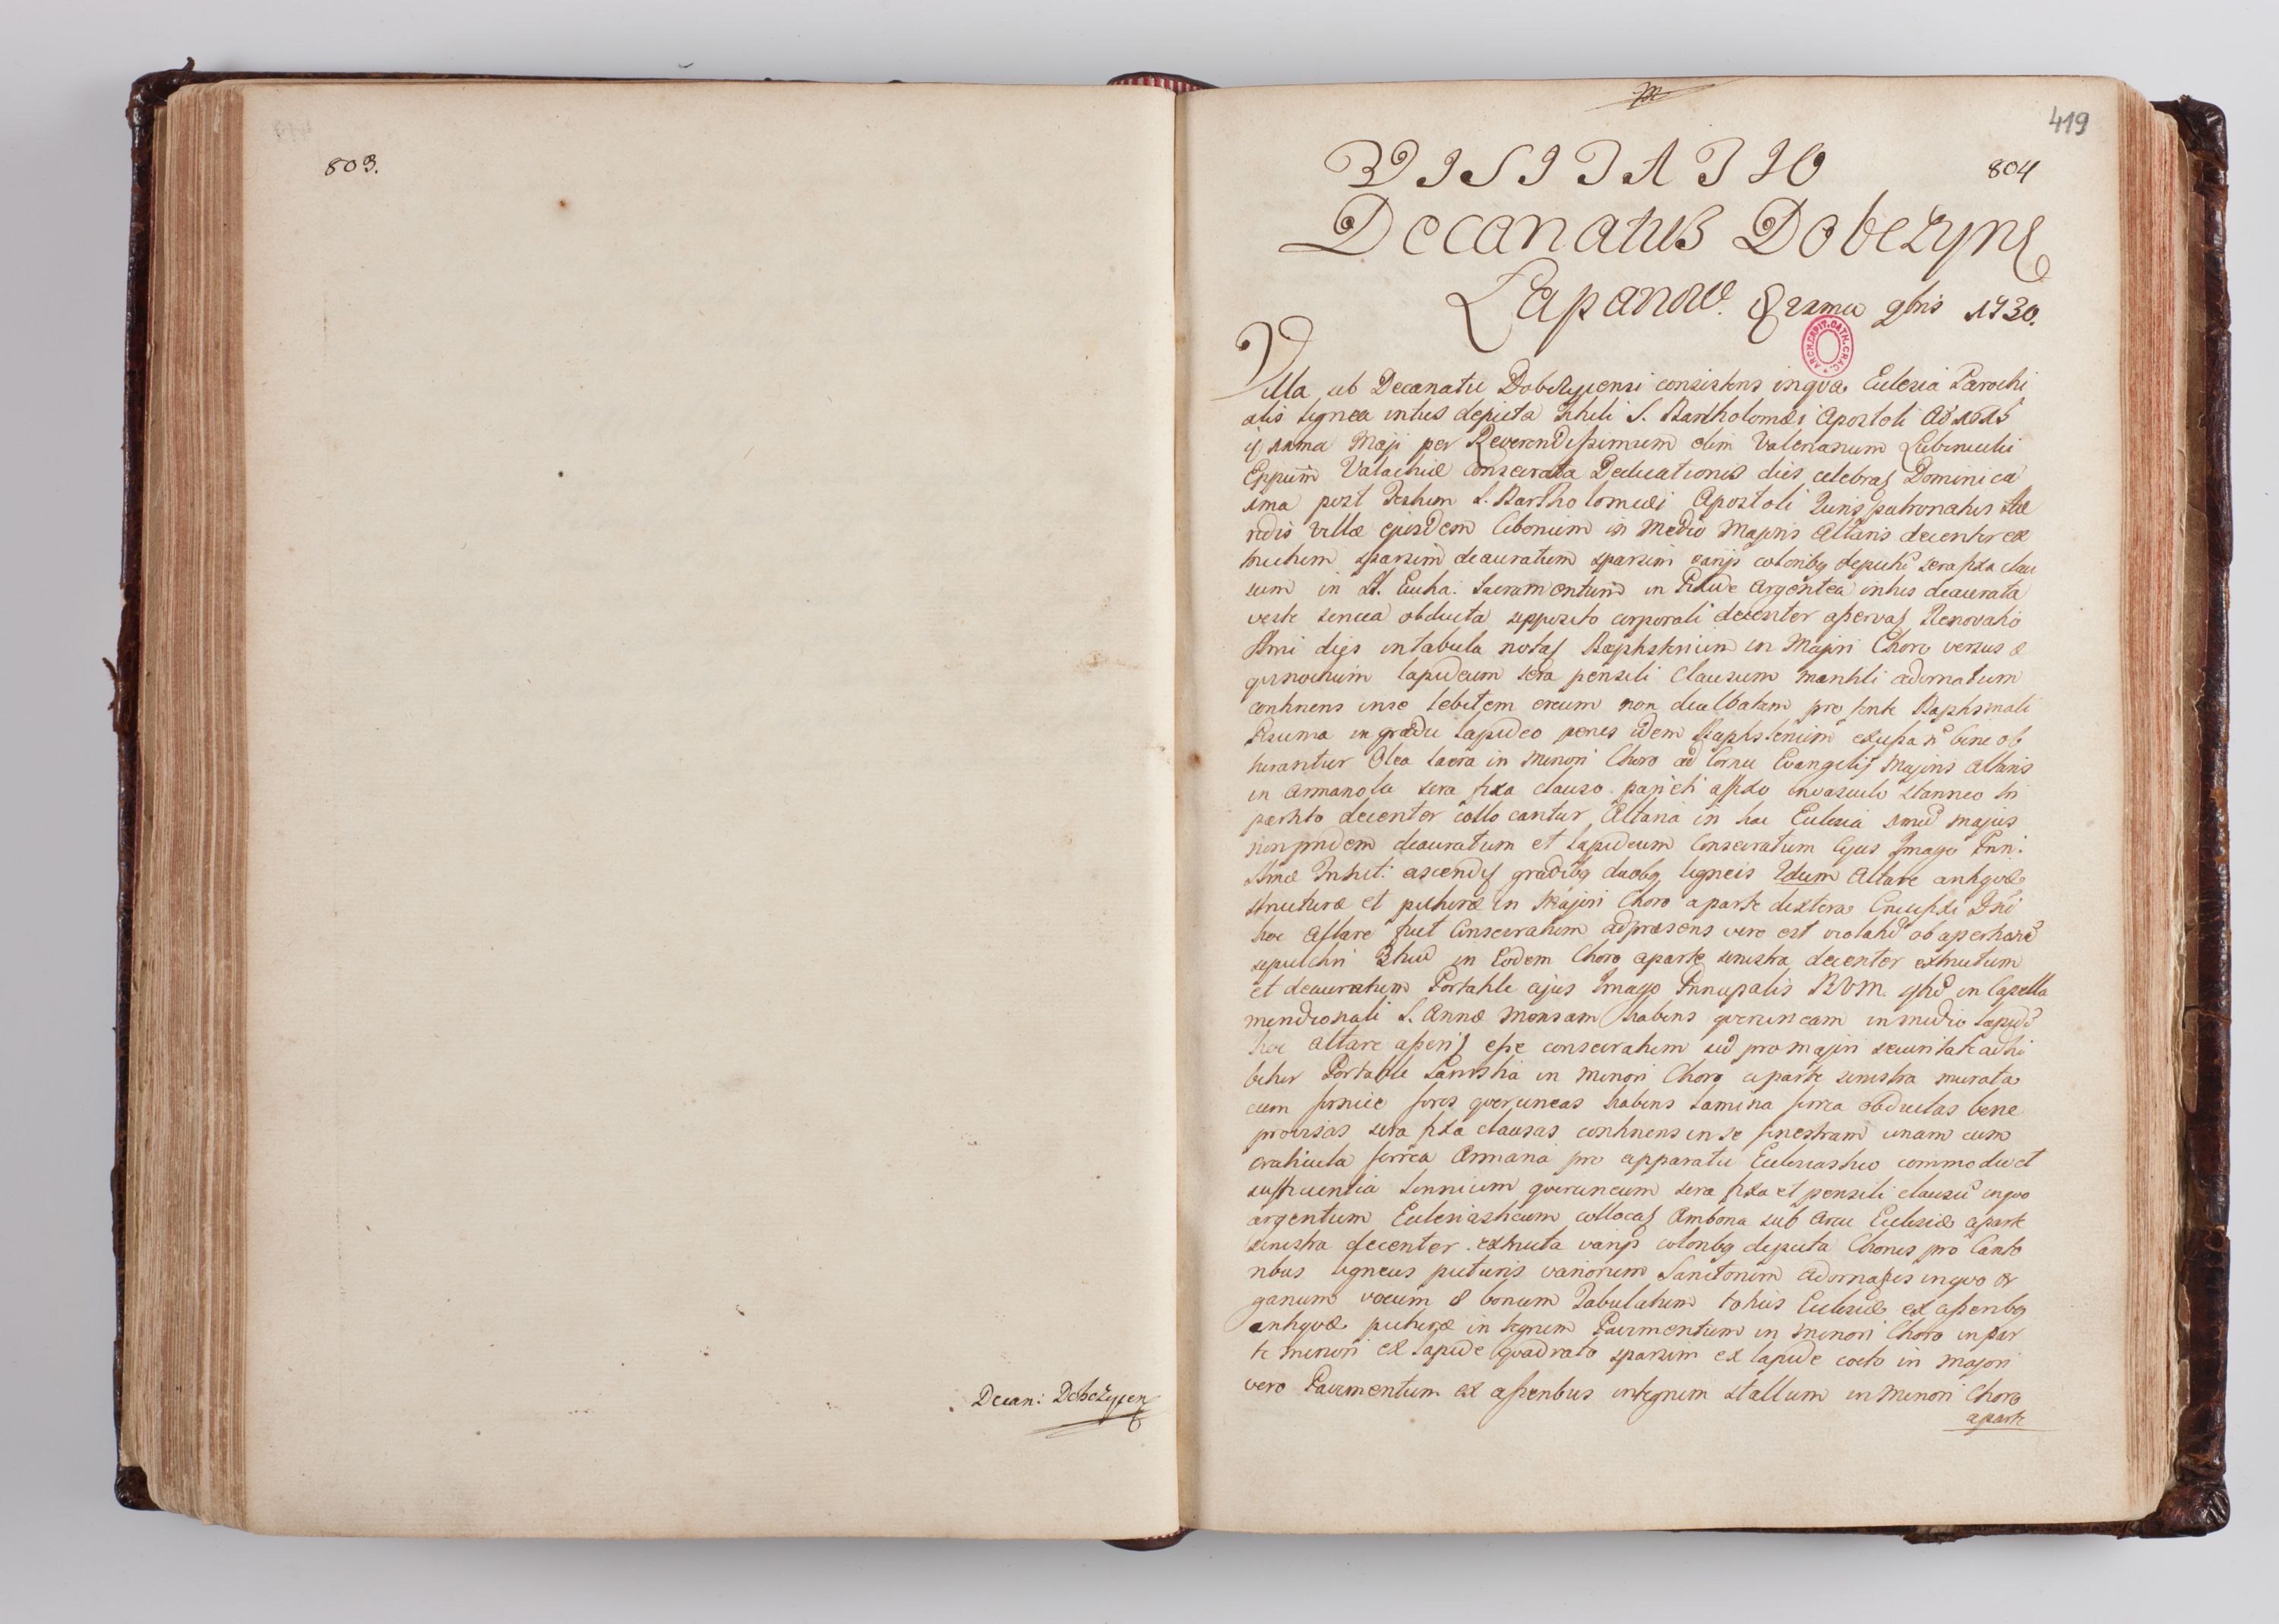 803.
Decan: Dobczycen
419
804
VISITATIO
Decanatus Dobczyn
Łapanow. 8 9bris 1730.
ARCH. CAPIT. CATH. CRAC.
Villa sub Decanatu Dobczycensi consistens in qva Ecclesia Parochi
alis lignea intus depicta tituli S. Bartholomæi Apostoli Aō
Maji per Reverendissimum olim Valerianum Lubieniecki
Eppum Valachiæ consecrata Dedicationis dies celebrat Dominica
1ma post Festum S. Bartholomæi Apostoli Juris patronatus Hæ
redis villæ ejusdem Ciborium in Medio Majoris Altaris decenter ex
tructum sparsim deauratum sparsim varijs colorib9 depict sera fixa clau
sum in Eucha: Sacramentum in Pixide Argentea intus deaurata
veste sericea obducta supposito corporali decenter asservat Renovatio
dies in tabula notat Baptisterium in Majori Choro versus
lapideum sera pensili clausum mantili adornatum
continens in se lebetem æreum non dealbatum pro fonte Baptismali
in gradu Lapideo penes idem Baptisterium bene ob
Olea Sacra in Minori Choro ad Cornu Evangelij Majoris Altaris
in Armariolo sera fixa clauso parieti affixo in vasculo stanneo tri
partito decenter collocantur Altaria in hac Ecclesia majus
non pridem deauratum et Lapideum Consecratum Cujus Imago
ascendit gradib9 duob9 ligneis 2dum Altare antiqvæ
structuræ et picturæ in Majori Choro a parte dextera Crucifixi Dni
hoc Altare fuit Consecratum ad præsens vero est violatū ob
sepulchri 3tiū in Eodem Choro a parte sinistra decenter extructum
et deauratum Portatile cujus Imago Principalis B.V.M. 4tū in Capella
meridionali S. Annæ Mensam habens qverceam in medio lapidē
hoc altare asserit esse consecratum sed pro majori securitate adhi
betur Portatile in Minori Choro a parte sinistra murata
cum fornice fores qverceas habens Lamina ferrea obductas bene
provisas sera fixa clausas continens in se fenestram unam cum
craticula ferrea Armaria pro apparatu Ecclesiastico commoda et
sufficientia Scrinium qverceum sera fixa et pensili clausū in qvo
argentum Ecclesiasticum collocat Ambona sub Arcu Ecclesiæ a parte
sinistra decenter extructa varijs colorib9 depicta Chorus pro Canto
ribus ligneus picturis variorum Sanctorum adornatus in qvo or
ganum vocum 8 bonum Tabulatum totius Ecclesiæ ex asserib9
antiqvæ picturæ integrum Pavimentum in minori Choro in par
te minori ex lapide qvadrato sparsim ex lapide cocto in majori
vero Pavimentum ex asseribus integrum stallum in Minori Choro
a parte